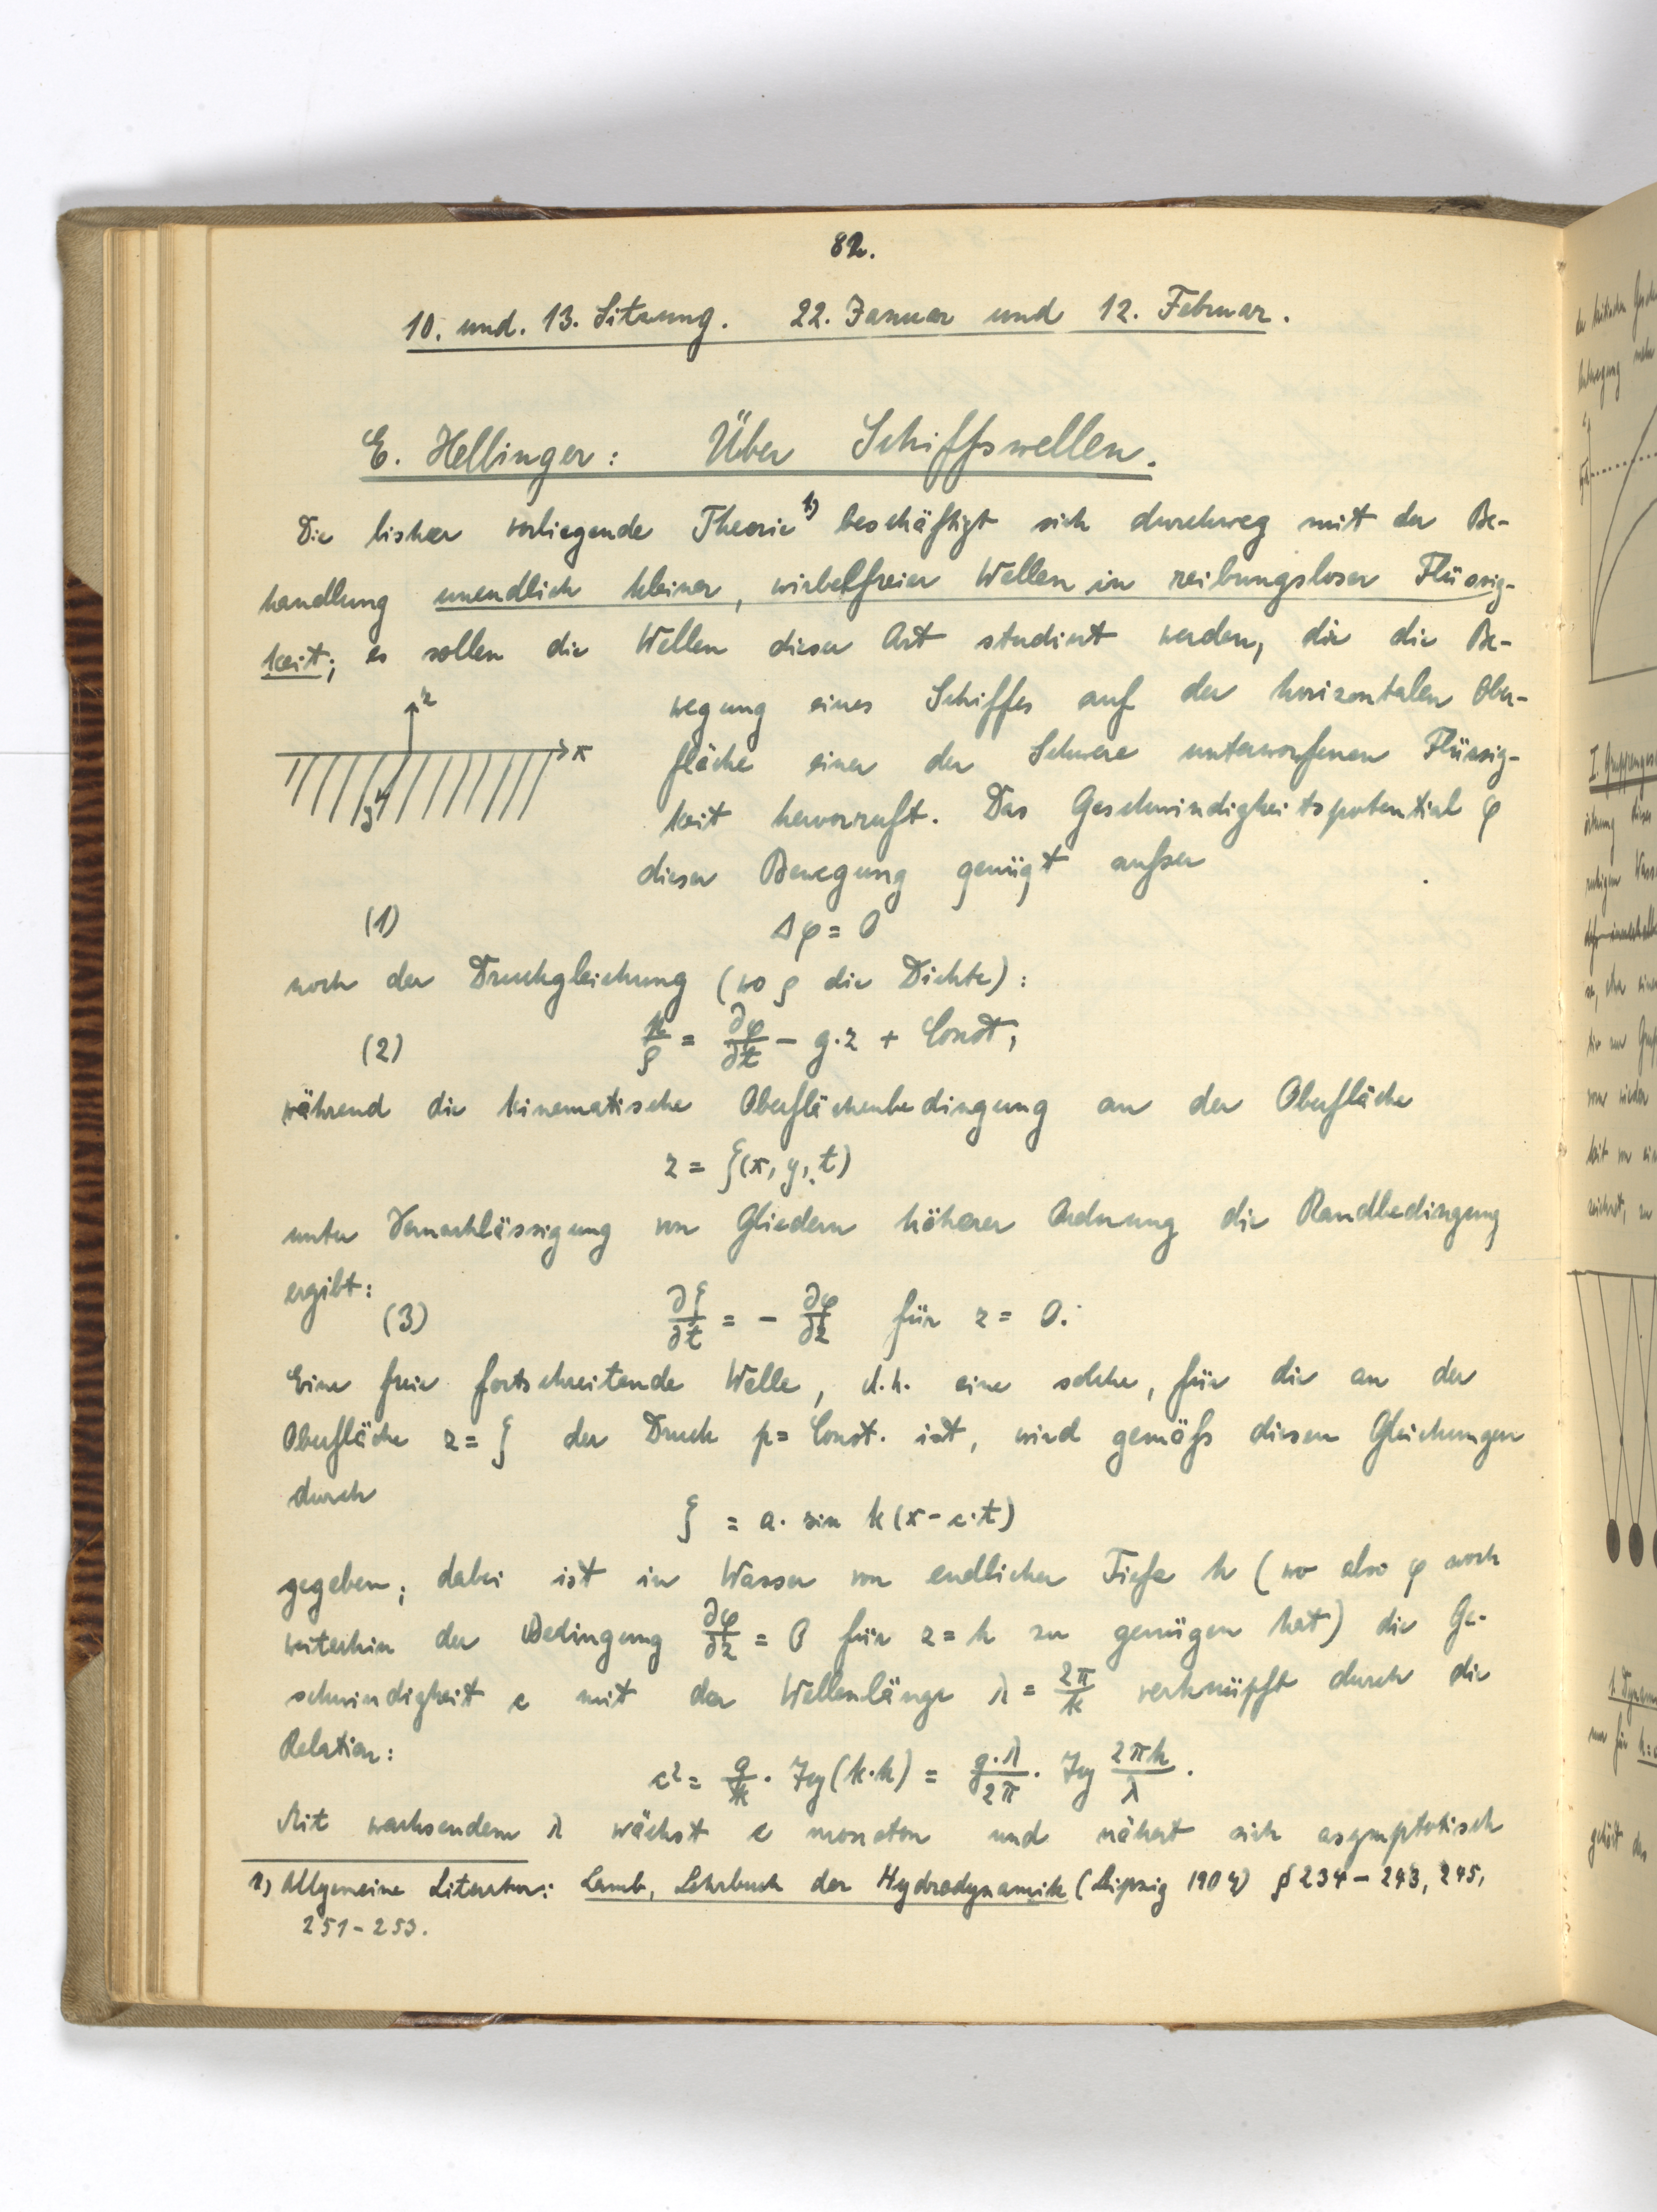 82.
10. und. 13. Sitzung. 22. Januar und 12. Februar.
E. Hellinger: Über Schiffswellen.
Die bisher vorliegende Theorie 1) beschäftigt sich durchweg mit der Be-
handlung unendlich kleiner, wirbelfreier Wellen in reibungsloser Flüssig-
keit; es sollen die Wellen dieser Art studiert werden, die die Be-
wegung eines Schiffes auf der horizontalen Ober-
fläche einer der Schwere unterworfenen Flüssig-
keit hervorruft. Das Geschwindigkeitspotential φ
dieser Bewegung genügt außer
z
x
y
(1) Δφ = 0
noch der Druckgleichung (wo ρ die Dichte):
(2) p/ρ = ∂φ/∂t − g·z + Const,
während die kinematische Oberflächenbedingung an der Oberfläche
z = ζ(x, y, t)
unter Vernachlässigung von Gliedern höherer Ordnung die Randbedingung
ergibt:
(3) ∂ζ/∂t = − ∂φ/∂z für z = 0.
Eine freie fortschreitende Welle, d.h. eine solche, für die an der
Oberfläche z = ζ der Druck p = Const. ist, wird gemäß diesen Gleichungen
durch
ζ = a· sin k(x − c·t)
gegeben; dabei ist in Wasser von endlicher Tiefe h (wo also φ noch
weiterhin der Bedingung ∂φ/∂z = 0 für z = h zu genügen hat) die Ge-
schwindigkeit c mit der Wellenlänge λ = 2π/k verknüpft durch die
Relation:
c² = g/k · Tg(k·h) = g·λ/2π · Tg 2πh/λ.
Mit wachsendem λ wächst c monoton und nähert sich asymptotisch
1) Allgemeine Literatur: Lamb, Lehrbuch der Hydrodynamik (Leipzig 1907) § 234 – 243, 245,
251 – 253.